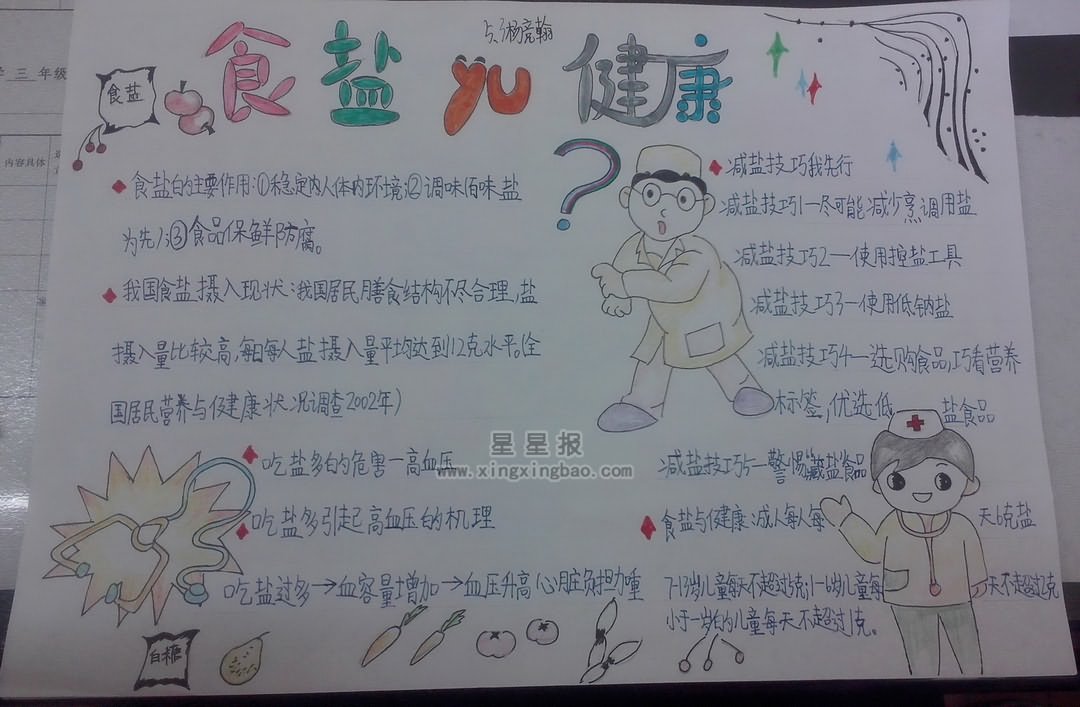 学三年级
内容具体
5.3杨亮翰
食盐
食盐yu健康
食盐的主要作用:①稳定内人体内环境;②调味,百味盐
为先;③食品保鲜防腐。
我国食盐摄入现状:我国居民膳食结构不尽合理,盐
摄入量比较高,每日每人盐摄入量平均达到12克水平。(全
国居民营养与健康状况调查2002年)
吃盐多的危害一高血压
吃盐多引起高血压的机理
吃盐过多→血容量增加→血压升高心脏负担加重
白糖
减盐技巧我先行
减盐技巧1一尽可能减少烹调用盐
减盐技巧2一使用控盐工具
减盐技巧3一使用低钠盐
减盐技巧4一选购食品,巧看营养
标签,优选低盐食品
减盐技巧5一警惕藏盐食品
食盐与健康:成人每人每天6克盐
7-13岁儿童每天不超过5克;1-6岁儿童每天不超过2克
小于一岁的儿童每天不超过1克。
星星报
www.xingxingbao.com